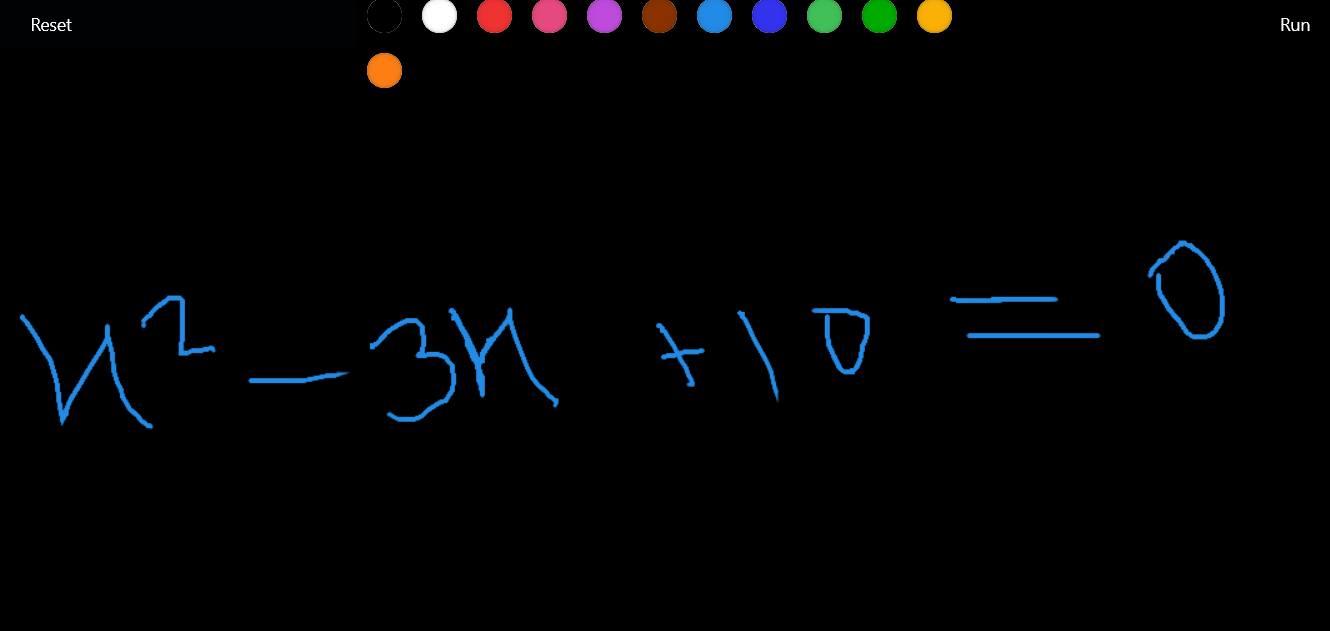 Reset Run
x² - 3x + 10 = 0